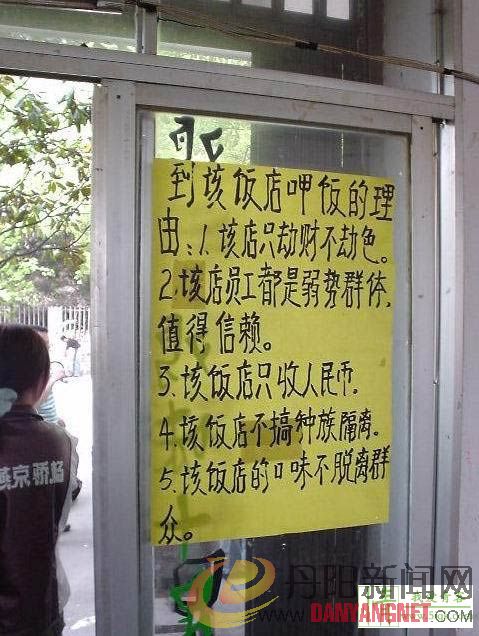 到该饭店呷饭的理
由:1.该店只劫财不劫色。
2.该店员工都是弱势群体,
值得信赖。
3.该饭店只收人民币。
4.该饭店不搞种族隔离。
5.该饭店的口味不脱离群
众。
燕京骄杨
丹阳新闻网
DANYANGNET.COM